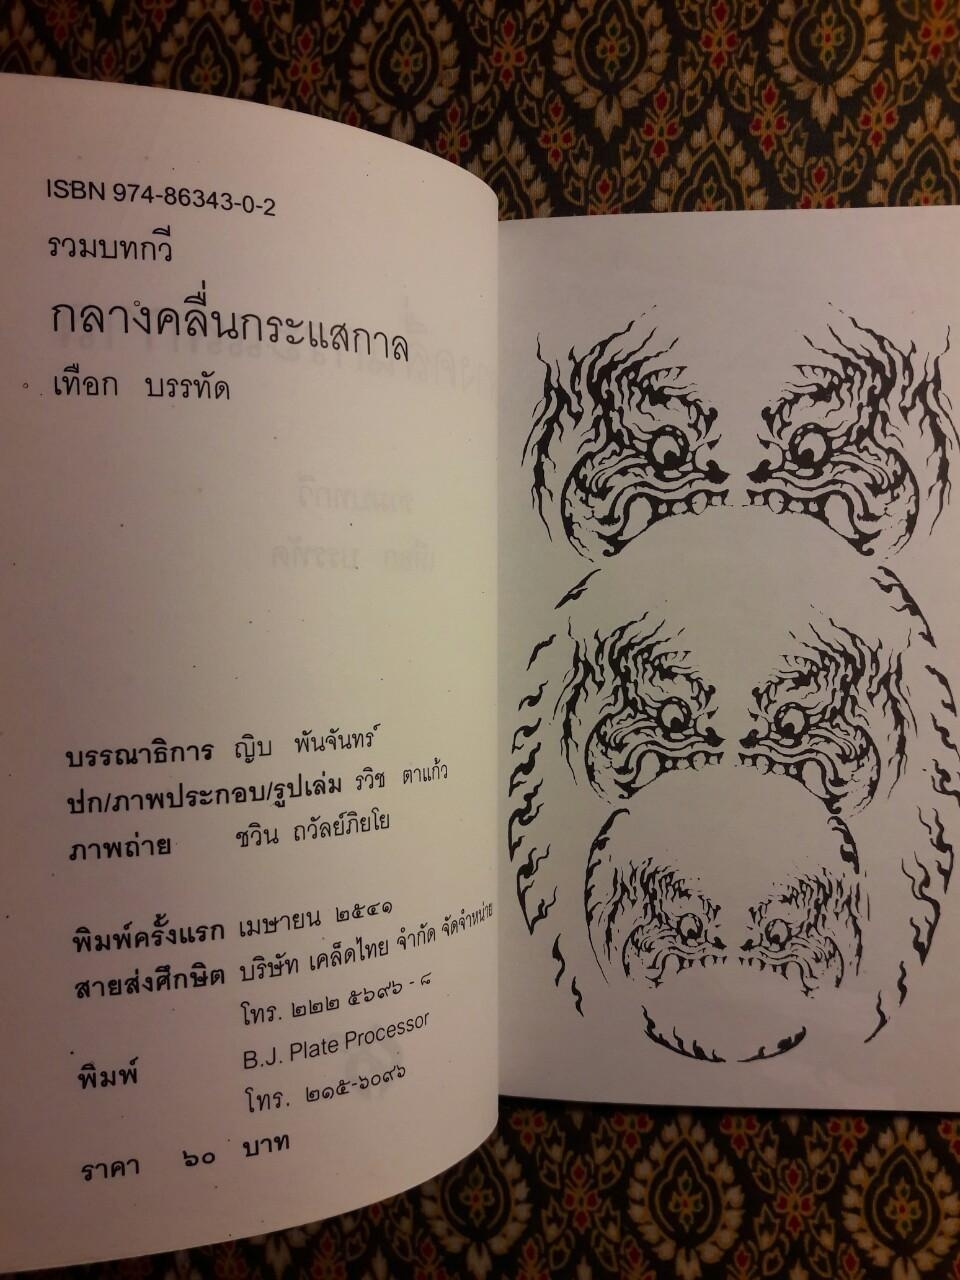 ISBN 974-86343-0-2
รวมบทกวี
กลางคลื่นกระแสกาล
เทือก บรรทัด
บรรณาธิการ ญิบ พันจันทร์
ปก/ภาพประกอบ/รูปเล่ม รวิช ตาแก้ว
ภาพถ่าย ชวิน ถวัลย์ภิยโย
พิมพ์ครั้งแรก เมษายน ๒๕๔๑
สายส่งศึกษิต บริษัท เคล็ดไทย จำกัด จัดจำหน่าย
โทร. ๒๒๒ ๕๖๙๖ - ๘
พิมพ์ B.J. Plate Processor
โทร. ๒๑๕-๖๐๙๖
ราคา ๖๐ บาท